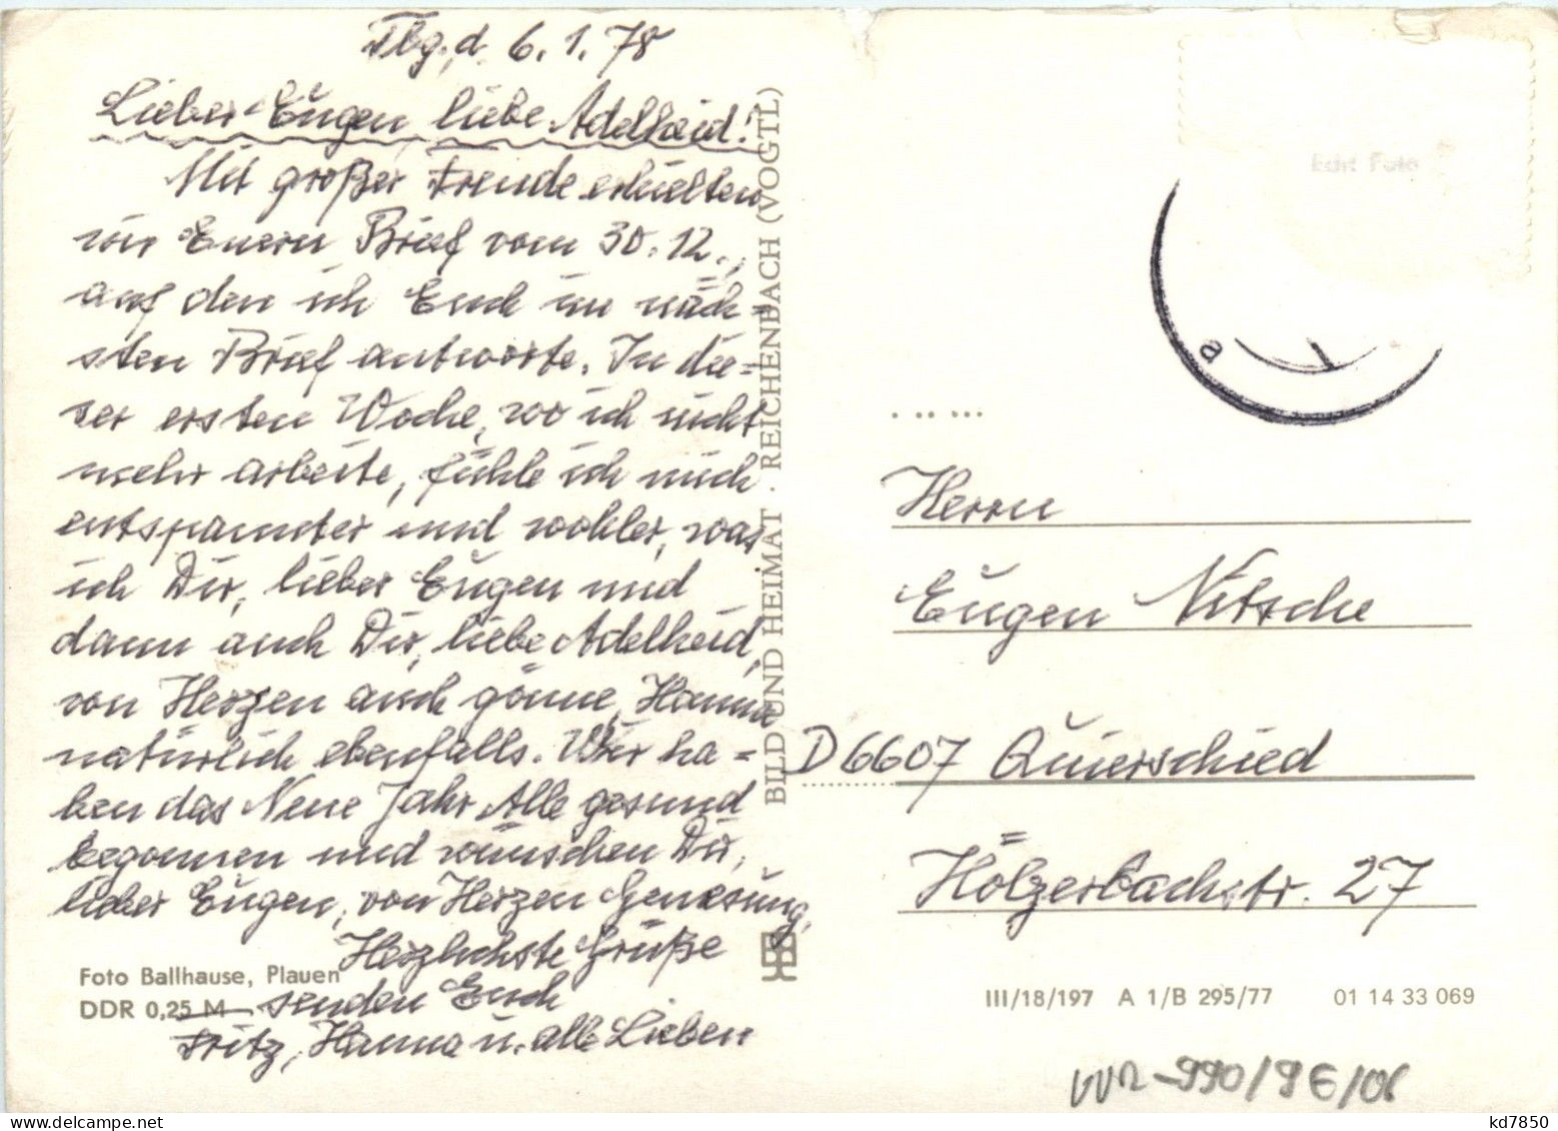 Tbg., d. 6.1.78
Lieber Eugen, liebe Adelheid!
Mit großer Freude erhielten
wir Euern Brief vom 30.12.,
auf den ich Euch im näch=
sten Brief antworte. In die=
ser ersten Woche, wo ich nicht
mehr arbeite, fühle ich mich
entspannter und wohler, was
ich Dir, lieber Eugen und
dann auch Dir, liebe Adelheid,
von Herzen auch gönne, Hanna
natürlich ebenfalls. Wir ha=
ben das Neue Jahr Alle gesund
begonnen und wünschen Dir,
lieber Eugen, von Herzen Genesung,
Herzlichste Grüße
senden Euch
Fritz, Hanna u. alle Lieben
Foto Ballhause, Plauen
DDR 0,25 M
BILD UND HEIMAT · REICHENBACH (VOGTL)
Echt Foto
a
Herrn
Eugen Nitsche
D 6607 Quierschied
Hölzerbachstr. 27
III/18/197 A 1/B 295/77 01 14 33 069
VVR-990/9E/06
kd7850